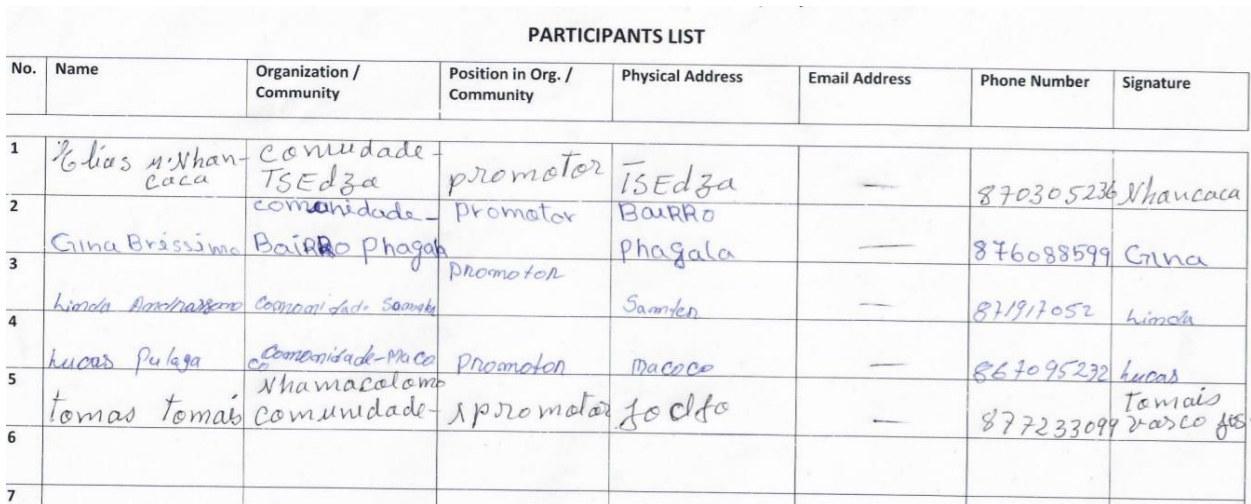 PARTICIPANTS LIST
No. Name Organization / Community Position in Org. / Community Physical Address Email Address Phone Number Signature
1 Elias M. Nhan-caca comudade- TSEdza promotor TSEdza — 870305236 Nhancaca
2 Gina Bréssimo comonidade- BaiRRo Phagala Promotor BaiRRo Phagala — 876088599 Gina
3 Linda promotor — 871917052 Linda
4 Lucas Pulaga Comonidade-Maco co Promotor Macoco — 867095232 Lucas
5 tomas Tomais Nhamacolomo comunidade- promotor — 877233099 Tomais vasco
6
7